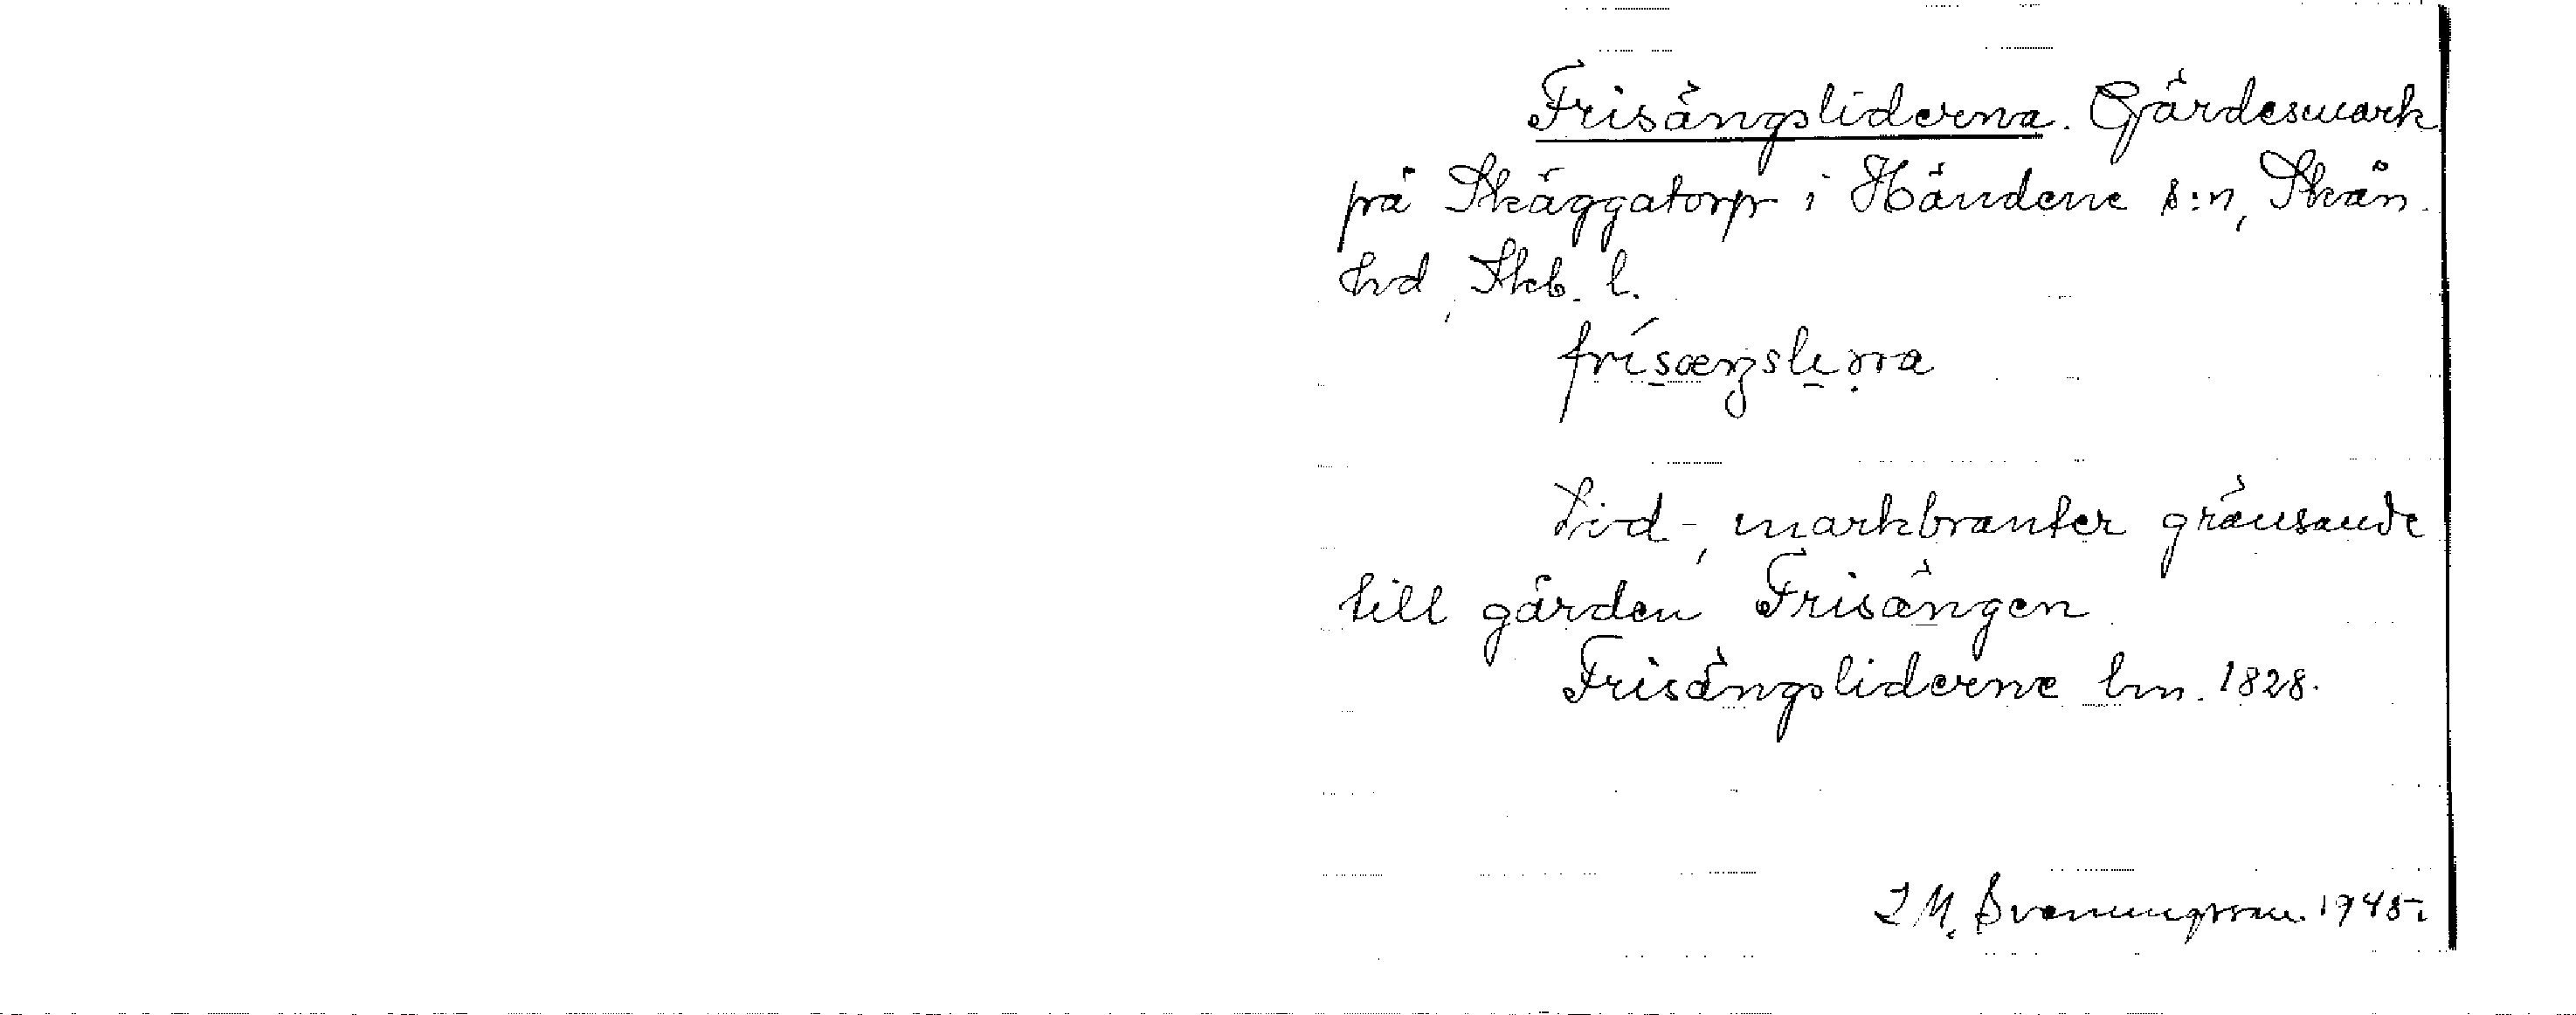 Frisängsliderna. Gärdesmark
på Skäggatorp i Händene s:n, Skån.
hd, Skb. l.
Lid-, markbranter gränsande
till gården Frisängen
Frisängsliderne lm. 1828.
J M. Svenungsson 1945.